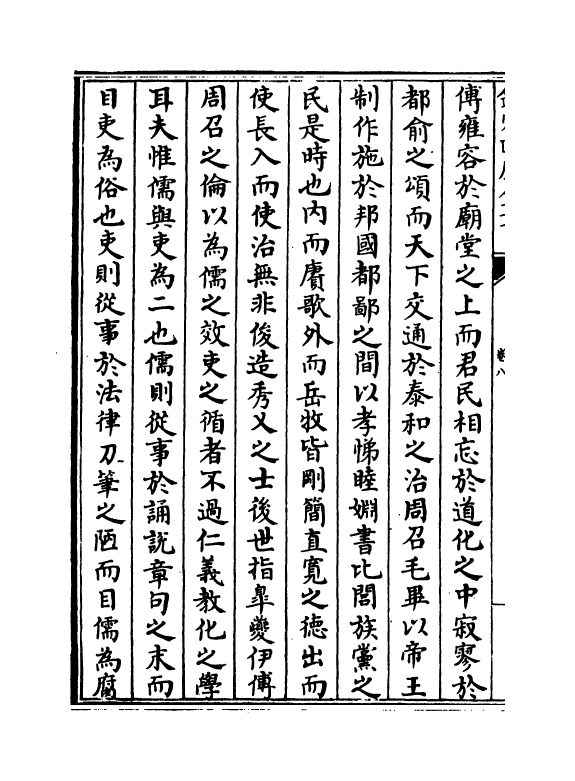 卷八
傅雍容於廟堂之上而君民相忘於道化之中寂寥於
都俞之頌而天下交通於泰和之治周召毛畢以帝王
制作施於邦國都鄙之間以孝悌睦婣書比閭族黨之
民是時也内而賡歌外而岳牧皆剛簡直寛之徳出而
使長入而使治無非俊造秀乂之士後世指臯夔伊傅
周召之倫以為儒之效吏之循者不過仁義教化之學
耳夫惟儒與吏為二也儒則從事於誦説章句之末而
目吏為俗也吏則從事於法律刀筆之陋而目儒為腐